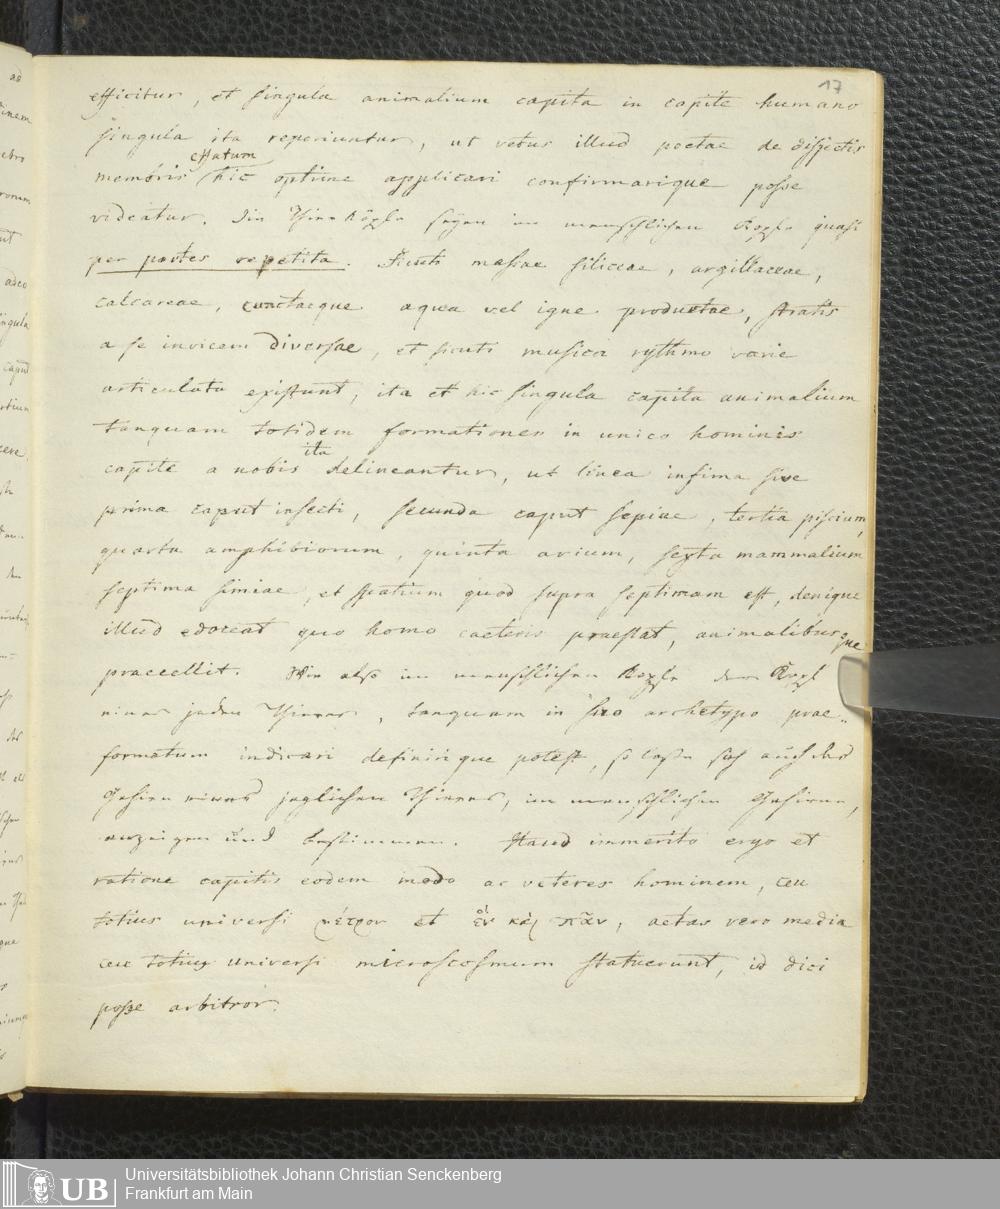 17
efficitur, et singula animalium capita in capite humano
singula ita reperiuntur, ut vetus illud poetae de disjectis
effatum
membris hic optime applicari confirmarique posse
videatur. Die Thierköpfe seyen im menschlichen Kopfe quasi
per partes repetita. Sicuti massae siliceae, argillaceae,
calcareae, cunctaeque aqua vel igne productae, stratis
a se invicem diversae, et sicuti musica rythmo varie
articulata existunt, ita et hic singula capita animalium
tanquam totidem formationes in unico hominis
ita
capite a nobis delineantur, ut linea infima sive
prima caput insecti, secunda caput sepiae, tertia piscium,
quarta amphibiorum, quinta avium, sexta mammalium
septima simiae, et spatium quod supra septimam est, denique
illud edoceat quo homo caeteris praestat, animalibusque
praecellit. Wie also im menschlichen Kopfe der Kopf
eines jeden Thieres, tanquam in suo archetypo prae-
formatum indicari definirique potest, so lasse sich auch das
Gehirn eines jeglichen Thieres, im menschlichen Gehirne,
anzeigen und bestimmen. Haud immerito ergo et
ratione capitis eodem modo ac veteres hominem, ceu
totius universi μέτρον et ἓν καὶ πᾶν, aetas vero media
ceu totius universi microscosmum statuerunt, id dici
posse arbitror.
Universitätsbibliothek Johann Christian Senckenberg
Frankfurt am Main
UB